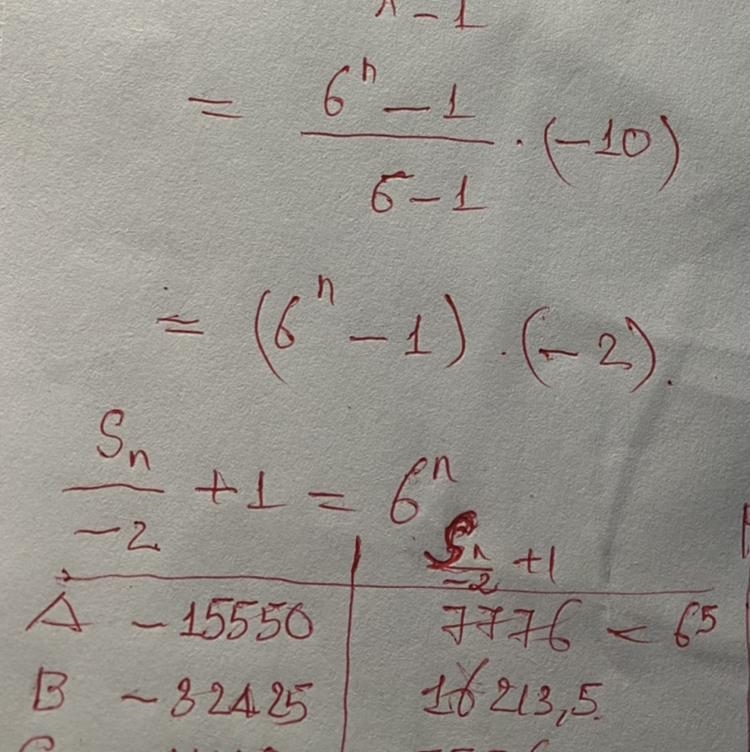 λ - 1
= (6^n - 1)/(6 - 1) · (-10)
= (6^n - 1) · (-2).
S_n/(-2) + 1 = 6^n
S_n/(-2) + 1
A -15550 7776 = 6^5
B -32425 16213,5